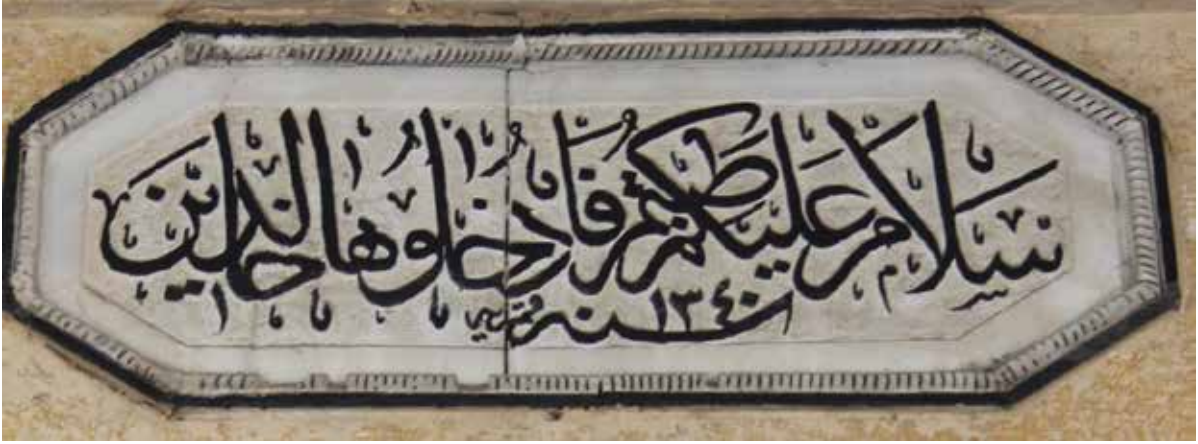 سلام عليكم طبتم فادخلوها خالدين
سنه ١٣٤٠